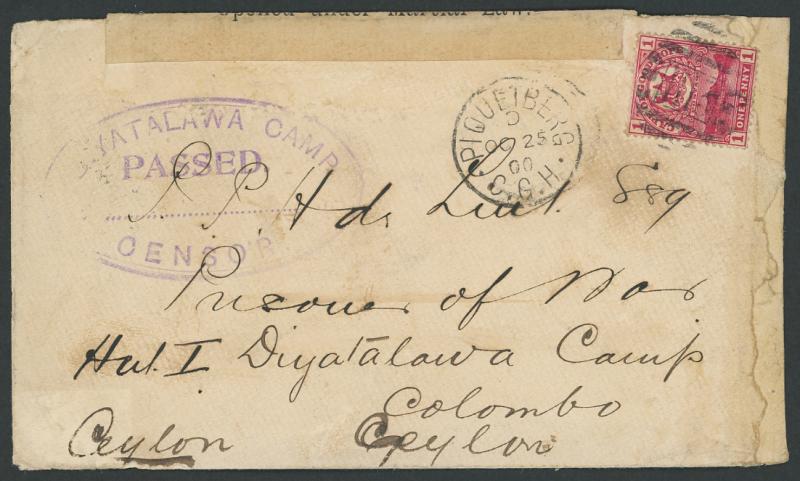 opened under Martial Law.
DIYATALAWA CAMP
PASSED
CENSOR
PIQUETBERG
D
OC 25
00
C.G.H.
1 CAPE OF GOOD HOPE 1
ONE PENNY
P. P. Hds Lint. 889
Prisoner of War
Hut. I Diyatalawa Camp
Colombo
Ceylon Ceylon